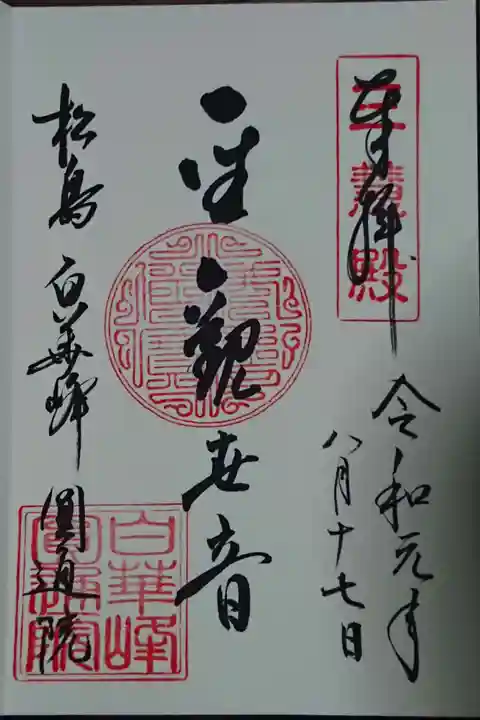 奉拝
三慧殿
令和元年
八月十七日
聖観世音
松島 白華峰 圓通院
白華峰
圓通院